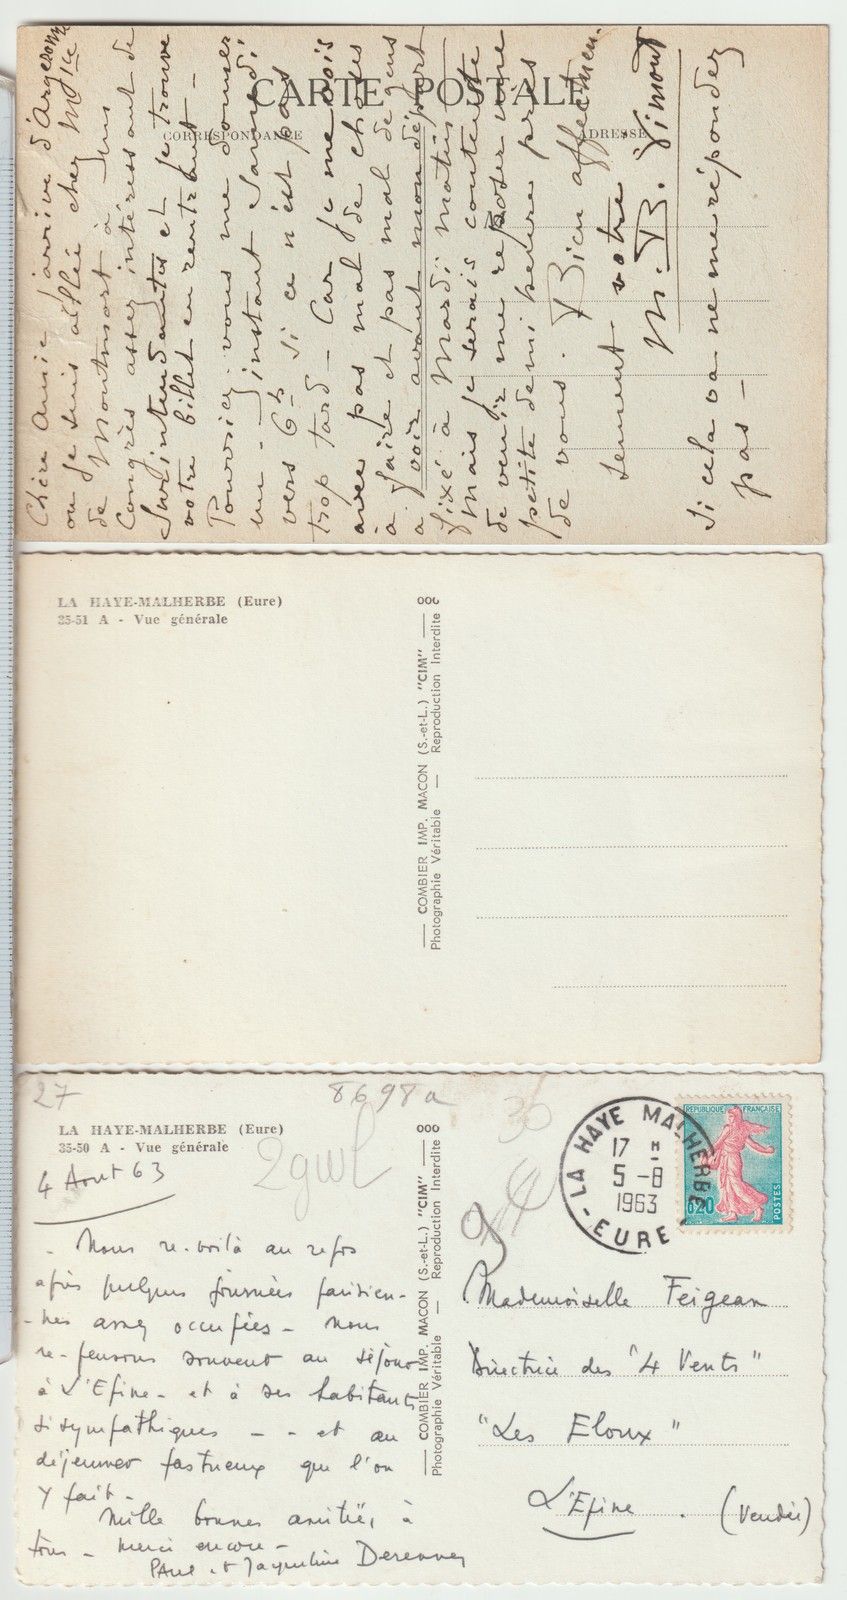 CARTE POSTALE
CORRESPONDANCE
ADRESSE
Chère Amie j'arrive d'Argeronne
ou je suis allée chez Mice
de Montmort à Juns
Congrès assez intéressant de
Surintendantes et je trouve
votre billet en rentrant -
Pourriez-vous me donner
un instant Samedi
vers 6h si ce n'est pas
trop tard - Car je me vois
avec pas mal de choses
à faire et pas mal de gens
a voir avant mon départ
fixé à Mardi matin
Mais je serais contente
de venir me reposer une
petite demi heure près
de vous. Bien affectueu-
sement votre
M. B. Vimont
Si cela va ne me répondez
pas -
LA HAYE-MALHERBE (Eure)
35-51 A - Vue générale
COMBIER IMP. MACON (S.-et-L.) "CIM"
Photographie Véritable — Reproduction Interdite
27
8698a
30
LA HAYE-MALHERBE (Eure)
35-50 A - Vue générale
4 Aout 63
- Nous re-voilà au repos
après quelques journées parisien-
-nes assez occupées - nous
re-pensons souvent au séjour
à L'Epine - et à ses habitants
si sympathiques - - et au
déjeuner fastueux que l'on
y fait -
Mille bonnes amitiés à
tous - merci encore -
Paul et Jacqueline Derenney
COMBIER IMP. MACON (S.-et-L.) "CIM"
Photographie Véritable — Reproduction Interdite
LA HAYE MALHERBE
17 H
5 -8
1963
- EURE
REPUBLIQUE FRANÇAISE
0,20
POSTES
Mademoiselle Feigean
Directrice des "4 Vents"
"Les Eloux"
L'Epine . (Vendée)